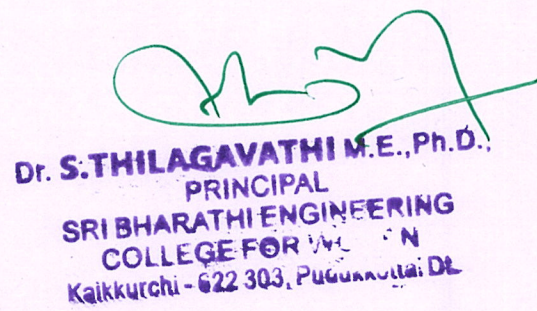 Dr. S.THILAGAVATHI M.E.,Ph.D.,
PRINCIPAL
SRI BHARATHI ENGINEERING
COLLEGE FOR
Kaikkurchi - 622 303, Pudukkottai Dt.